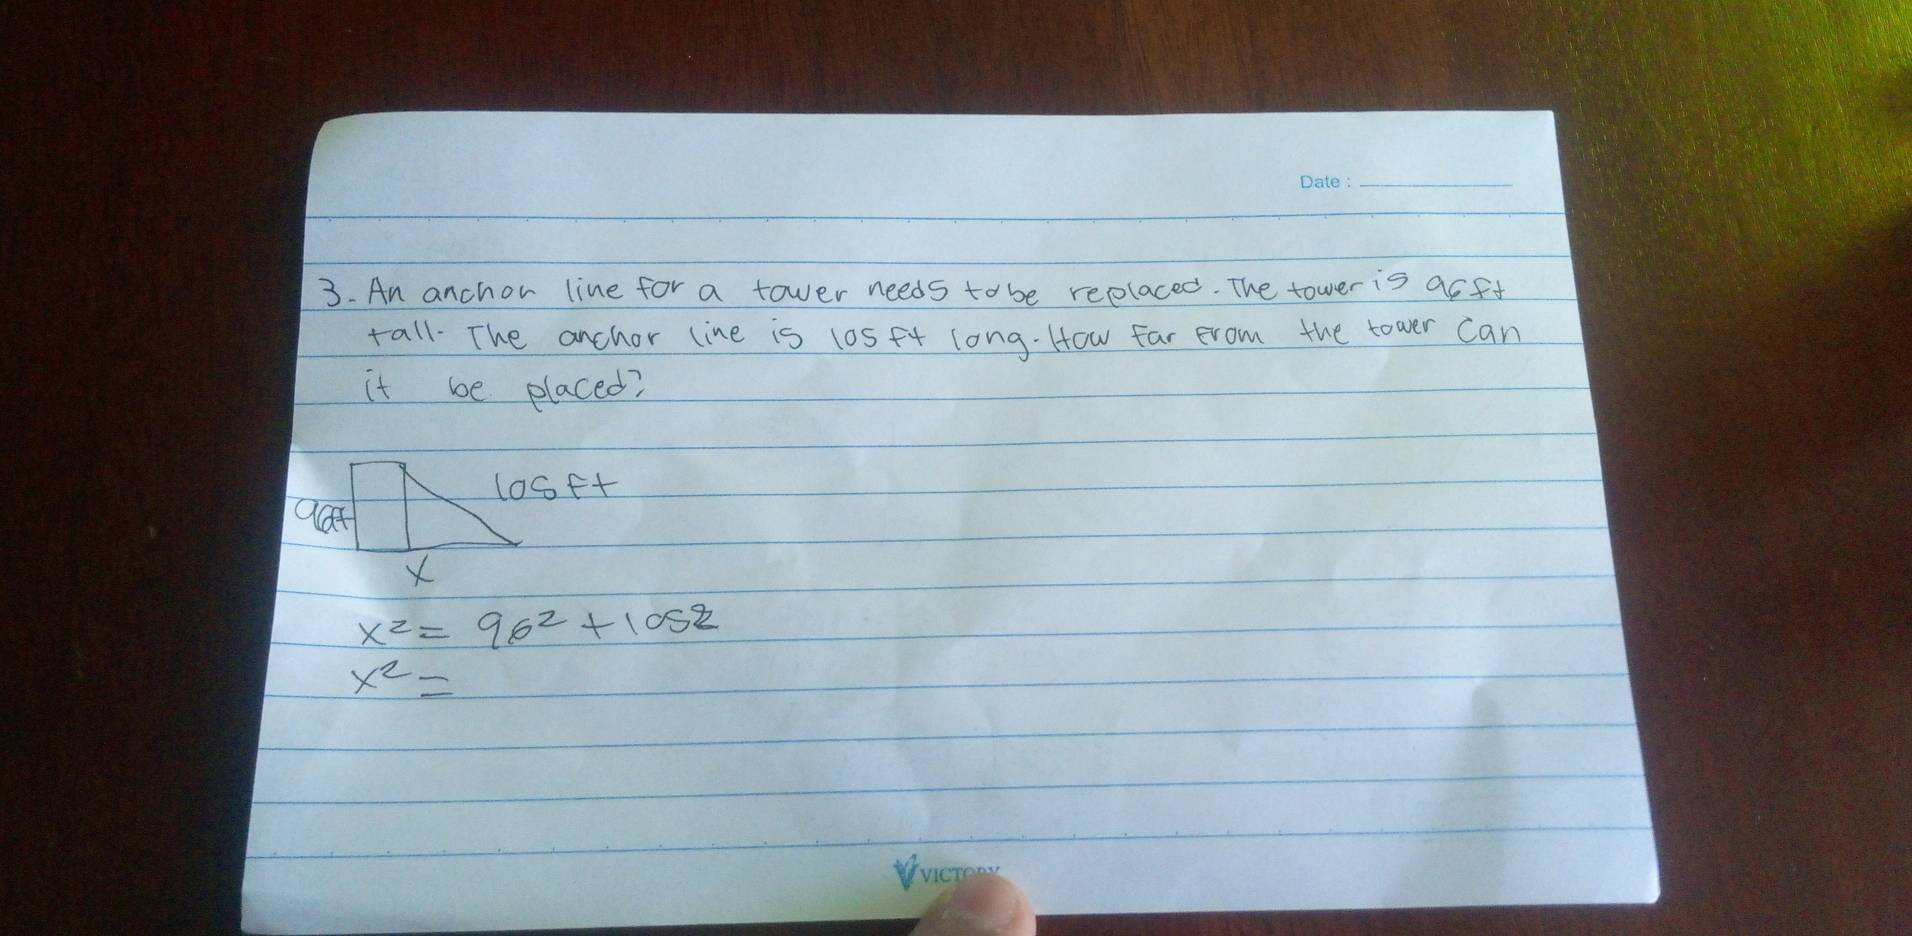 Date :
3. An anchor line for a tower needs to be replaced. The tower is 96 ft
tall. The anchor line is 105 ft long. How far from the tower can
it be placed?
105 ft
96ft
x
x² = 96² + 105²
x² =
VICTORY